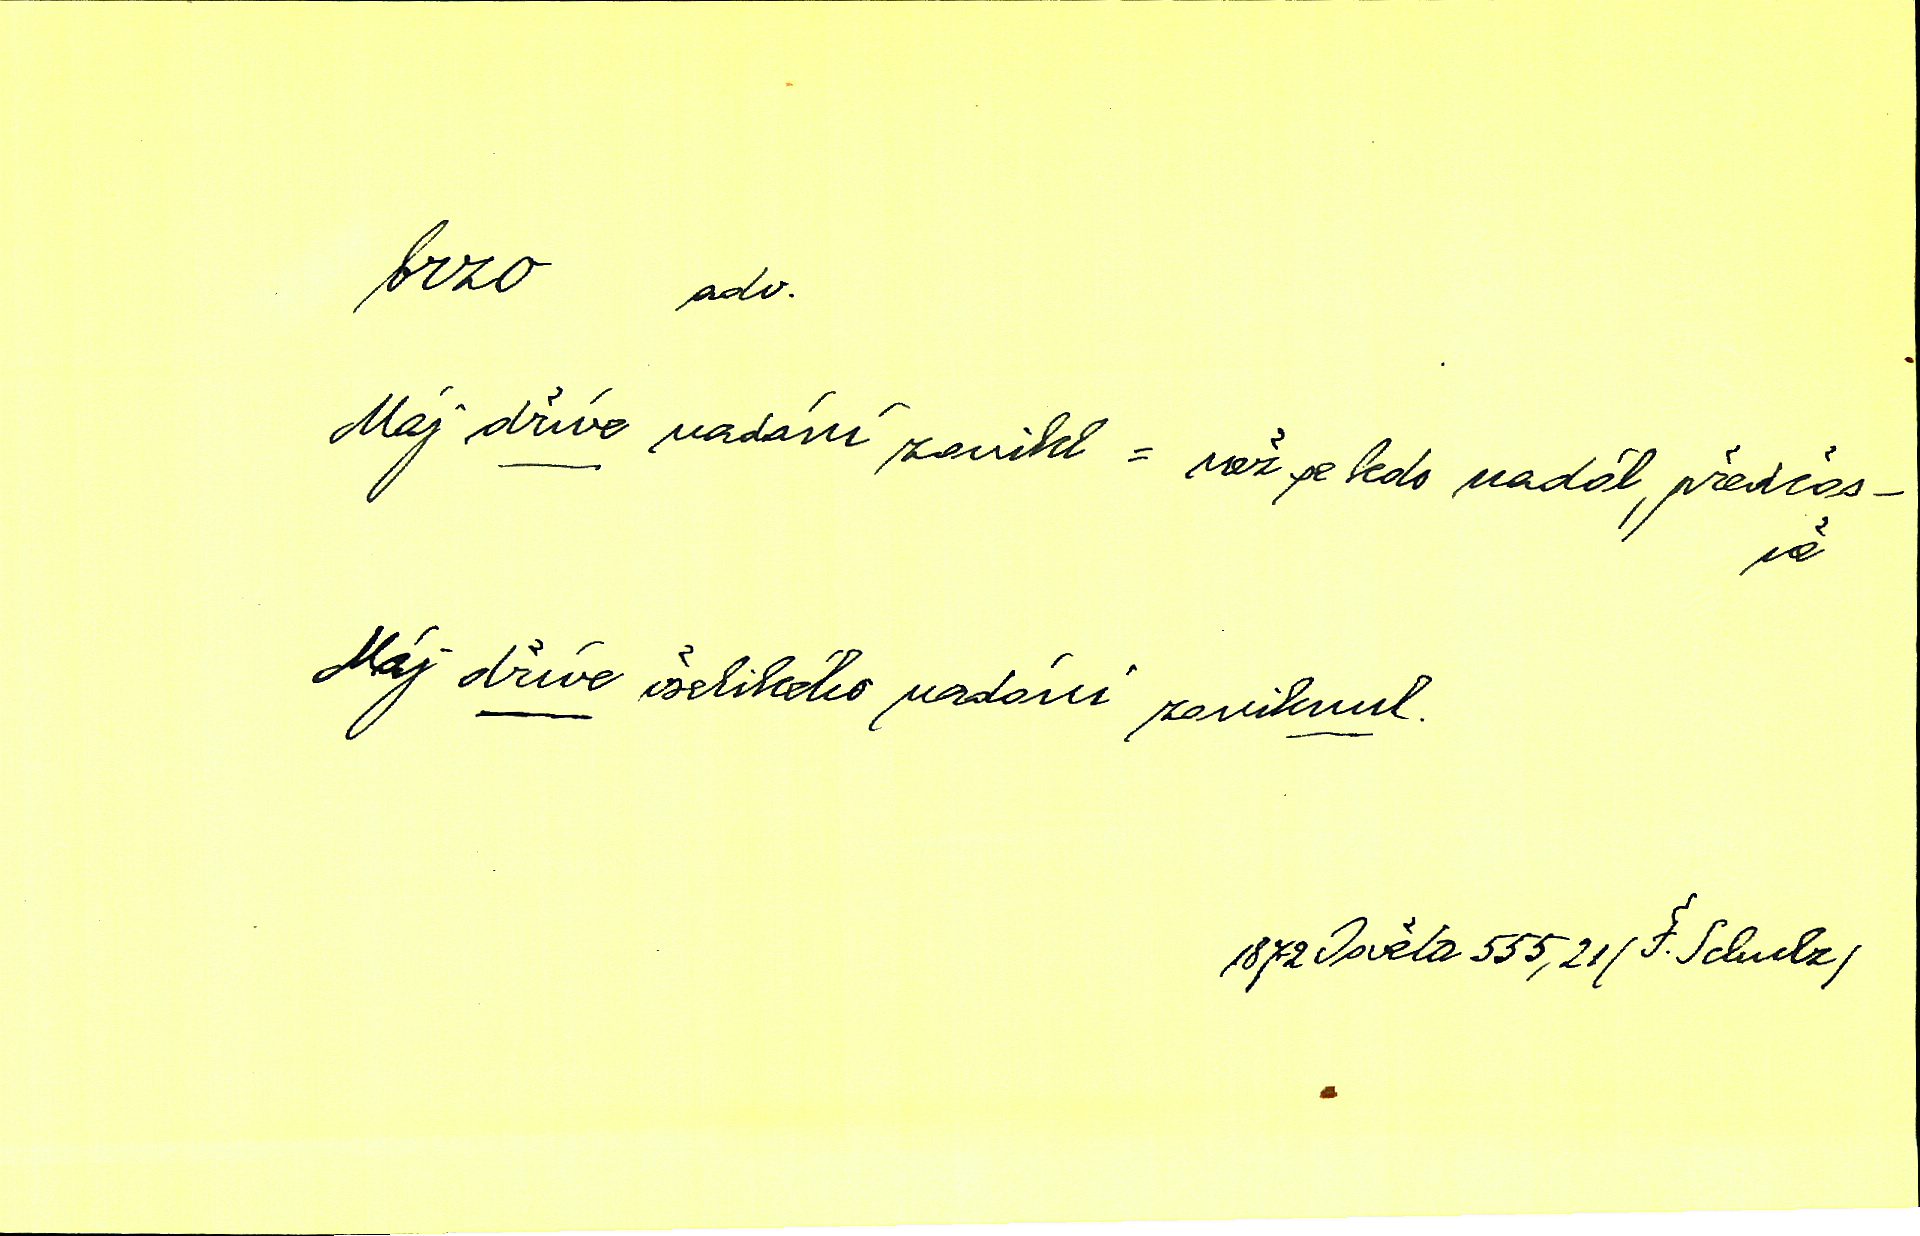 brzo adv.
Máj dříve nadání zanikl = než se kdo nadál, předčas-
ně
Máj dříve všelikého nadání zaniknul.
1872 Osvěta 555,21 (F. Schulz)